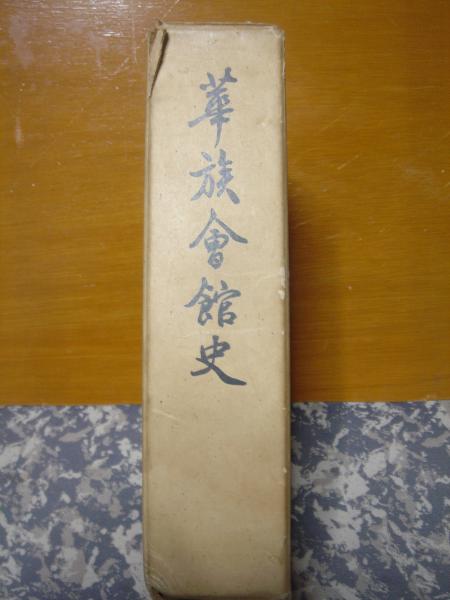 華族會館史